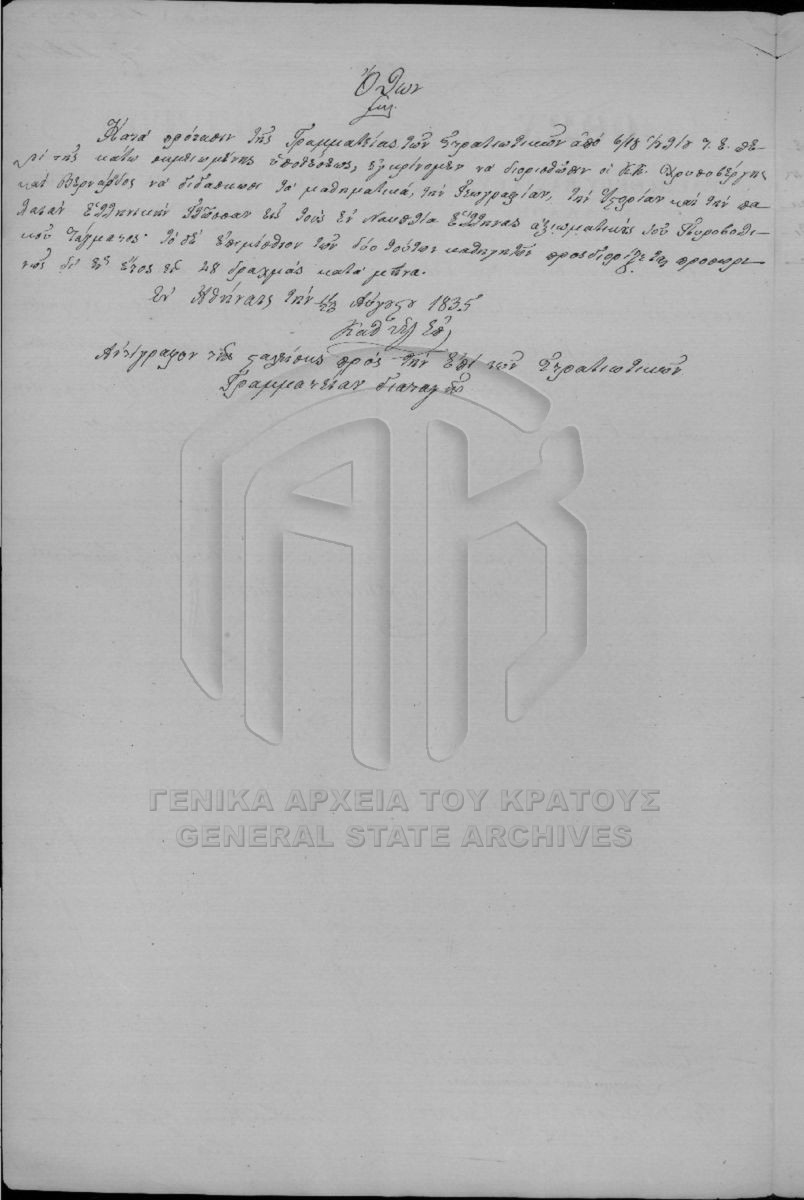 Ὄθων
Κατὰ πρότασιν τῆς Γραμματείας τῶν Στρατιωτικῶν ἀπὸ 6/18 Ἰουλίου τ. ἔ. πε-
ρὶ τῆς κάτω σημειωμένης ὑποθέσεως, ἐγκρίνομεν νὰ διορισθῶσιν οἱ Κ.Κ. Χρυσοβέργης
καὶ Βερνάρδος νὰ διδάσκωσι τὰ μαθηματικὰ, τὴν Γεωγραφίαν, τὴν Ἱστορίαν καὶ τὴν πα-
λαιὰν Ἑλληνικὴν Γλῶσσαν εἰς τοὺς ἐν Ναυπλίᾳ Ἕλληνας ἀξιωματικοὺς τοῦ Πυροβολι-
κοῦ Τάγματος· τὸ δὲ ἐπιμίσθιον τῶν δύο τούτων καθηγητῶν προσδιορίζεται προσωρι-
νῶς δι' ἓν ἔτος εἰς 48 δραχμὰς κατὰ μῆνα.
Ἐν Ἀθήναις τὴν Αὐγούστου 1835
Ἀντίγραφον τῆς πρὸς τὴν ἐπὶ τῶν Στρατιωτικῶν
Γραμματείαν διαταγῆς
ΓΕΝΙΚΑ ΑΡΧΕΙΑ ΤΟΥ ΚΡΑΤΟΥΣ
GENERAL STATE ARCHIVES